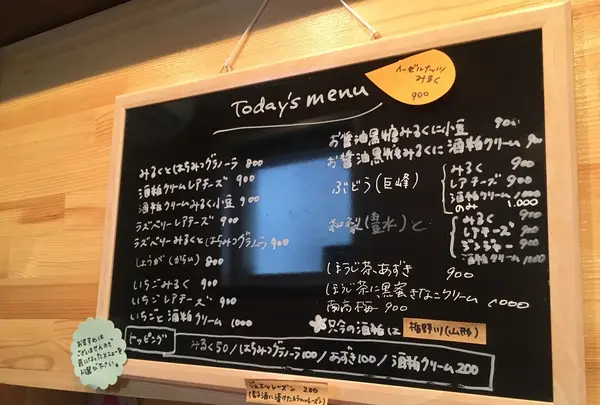 Today's menu
ヘーゼルナッツ
みるく
900
みるくとはちみつグラノーラ 800
酒粕クリームレアチーズ 900
酒粕クリームみるく小豆 900
ラズベリーレアチーズ 900
ラズベリーみるくとはちみつグラノーラ 900
しょうが(からい) 800
いちごみるく 900
いちごレアチーズ 900
いちごと酒粕クリーム 1000
お醤油黒糖みるくに小豆 900
お醤油黒糖みるくに酒粕クリーム 900
ぶどう(巨峰)
みるく 900
レアチーズ 900
酒粕クリーム 1000
のみ 1,000
和梨(豊水)と
みるく 900
レアチーズ 900
ジンジャー 900
酒粕クリーム 1000
ほうじ茶、あずき 900
ほうじ茶に黒蜜きなこクリーム 1000
南高梅 900
只今の酒粕は 楯野川(山形)
トッピング
みるく50/はちみつグラノーラ100/あずき100/酒粕クリーム200
おすすめは
ございませんので
気になったメニューを
お選び下さい。
ジュエルレーズン 200